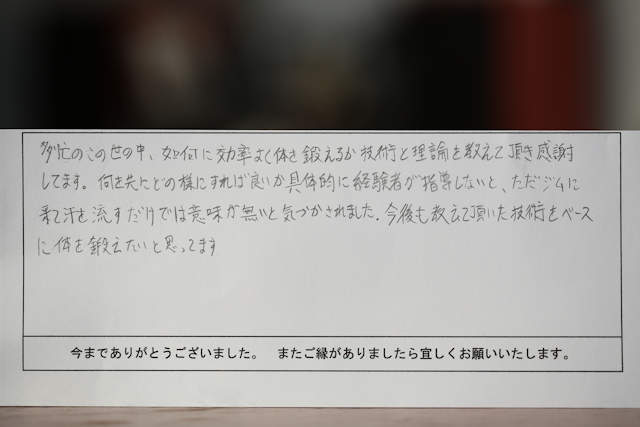 多忙のこの世の中、如何に効率よく体を鍛えるか技術と理論を教えて頂き感謝
してます。何を先にどの様にすれば良いか具体的に経験者が指導しないと、ただジムに
来て汗を流すだけでは意味が無いと気づかされました。今後も教えて頂いた技術をベース
に体を鍛えたいと思ってます
今までありがとうございました。 またご縁がありましたら宜しくお願いいたします。